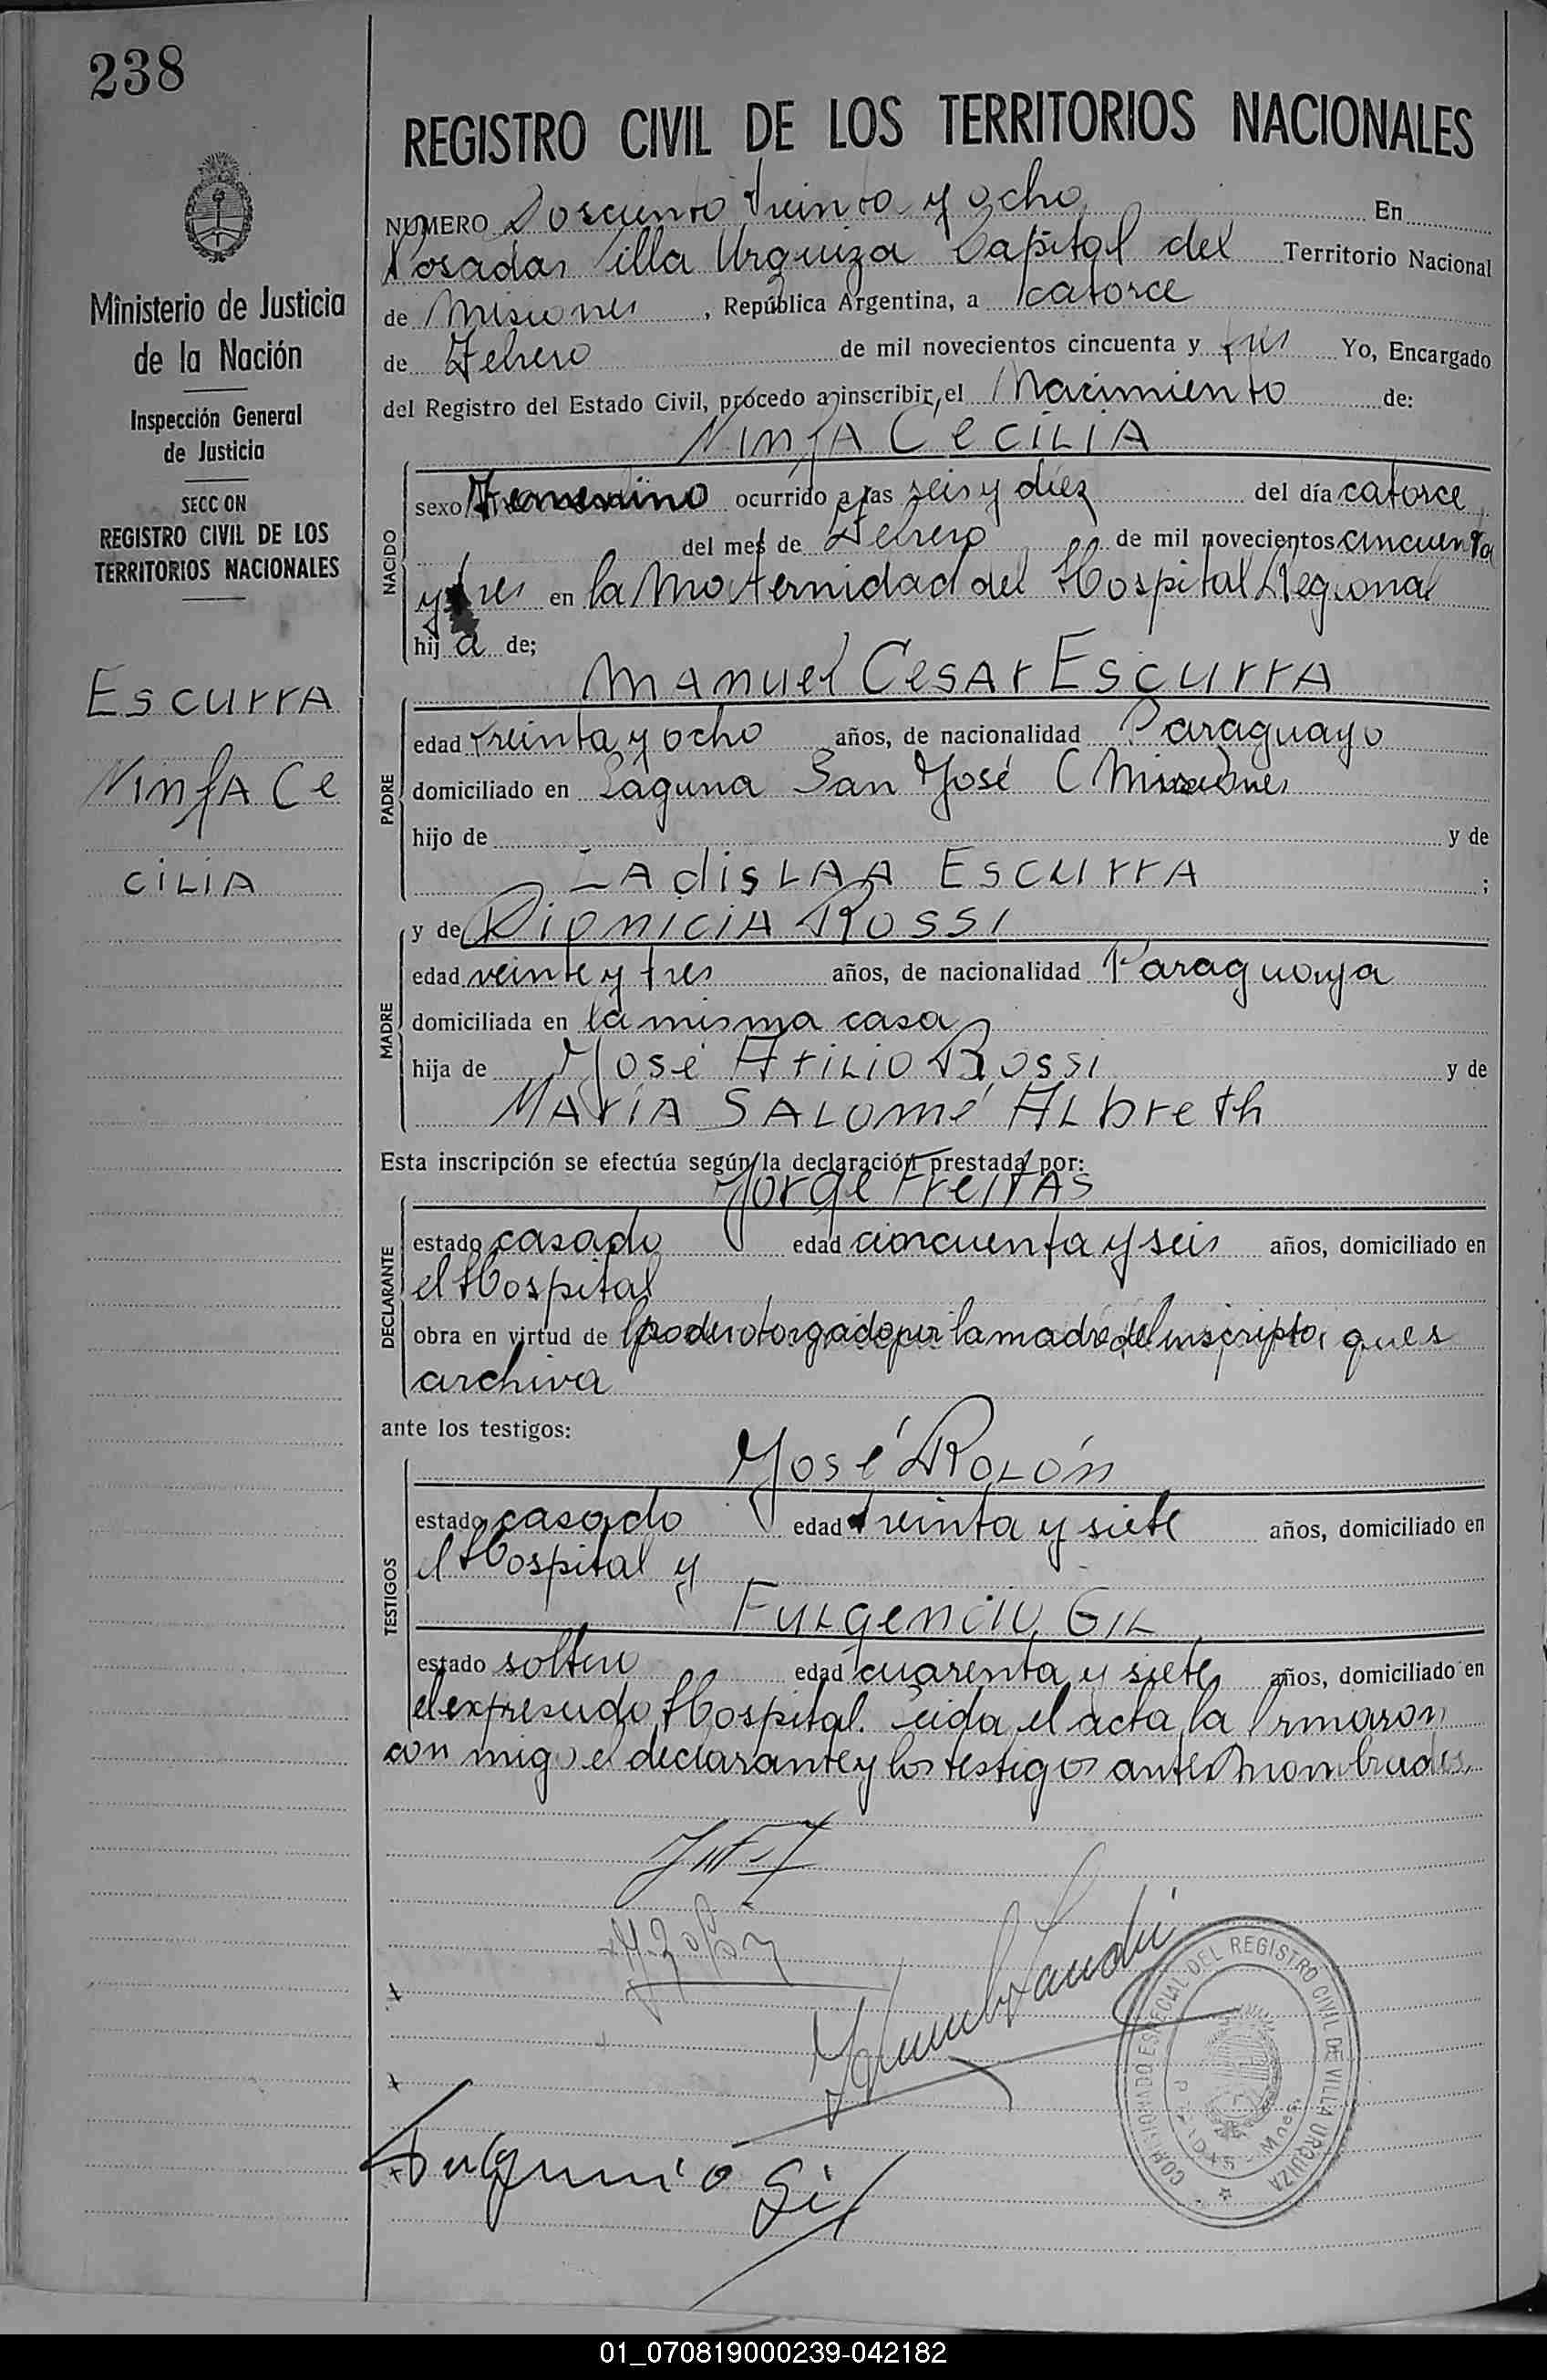 238
Ministerio de Justicia
de la Nación
Inspección General
de Justicia
SECCION
REGISTRO CIVIL DE LOS
TERRITORIOS NACIONALES
Escurra
Ninfa Ce
cilia
REGISTRO CIVIL DE LOS TERRITORIOS NACIONALES
NUMERO Dosciento treinta y ocho En
Posadas Villa Urquiza Capital del Territorio Nacional
de Misiones, República Argentina, a catorce
de Febrero de mil novecientos cincuenta y tres Yo, Encargado
del Registro del Estado Civil, procedo a inscribir, el Nacimiento de:
Ninfa Cecilia
NACIDO
sexo Femenino ocurrido a las seis y diez del día catorce
del mes de Febrero de mil novecientos cincuenta
y tres en la Maternidad del Hospital Regional
hija de;
Manuel Cesar Escurra
PADRE
edad treinta y ocho años, de nacionalidad Paraguayo
domiciliado en Laguna San José (Misiones
hijo de y de
Ladislaa Escurra ;
MADRE
y de Dionicia Rossi
edad veinte y tres años, de nacionalidad Paraguaya
domiciliada en la misma casa
hija de José Atilio Rossi y de
María Salomé Albreth
Esta inscripción se efectúa según la declaración prestada por:
Jorge Freitas
DECLARANTE
estado casado edad cincuenta y seis años, domiciliado en
el Hospital
obra en virtud de poder otorgado por la madre del inscripto, que se
archiva
ante los testigos:
José Rolón
TESTIGOS
estado casado edad treinta y siete años, domiciliado en
el Hospital y
Fulgencio Gil
estado soltero edad cuarenta y siete años, domiciliado en
el expresado Hospital. Leida el acta la firmaron
con migo el declarante y los testigos antes nombrados.
J. Rolón
Fulgencio Gil
COMISIONADO ESPECIAL DEL REGISTRO CIVIL DE VILLA URQUIZA
POSADAS - Mnes.
01_070819000239-042182